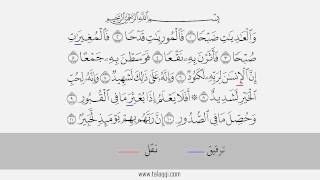 بِسْمِ ٱللَّهِ ٱلرَّحْمَٰنِ ٱلرَّحِيمِ
وَٱلْعَٰدِيَٰتِ ضَبْحًا ١ فَٱلْمُورِيَٰتِ قَدْحًا ٢ فَٱلْمُغِيرَٰتِ
صُبْحًا ٣ فَأَثَرْنَ بِهِۦ نَقْعًا ٤ فَوَسَطْنَ بِهِۦ جَمْعًا ٥
إِنَّ ٱلْإِنسَٰنَ لِرَبِّهِۦ لَكَنُودٌ ٦ وَإِنَّهُۥ عَلَىٰ ذَٰلِكَ لَشَهِيدٌ ٧ وَإِنَّهُۥ لِحُبِّ
ٱلْخَيْرِ لَشَدِيدٌ ٨ ۞ أَفَلَا يَعْلَمُ إِذَا بُعْثِرَ مَا فِى ٱلْقُبُورِ ٩
وَحُصِّلَ مَا فِى ٱلصُّدُورِ ١٠ إِنَّ رَبَّهُم بِهِمْ يَوْمَئِذٍ لَّخَبِيرٌۢ ١١
ترقيق نقل
www.tslaqqi.com